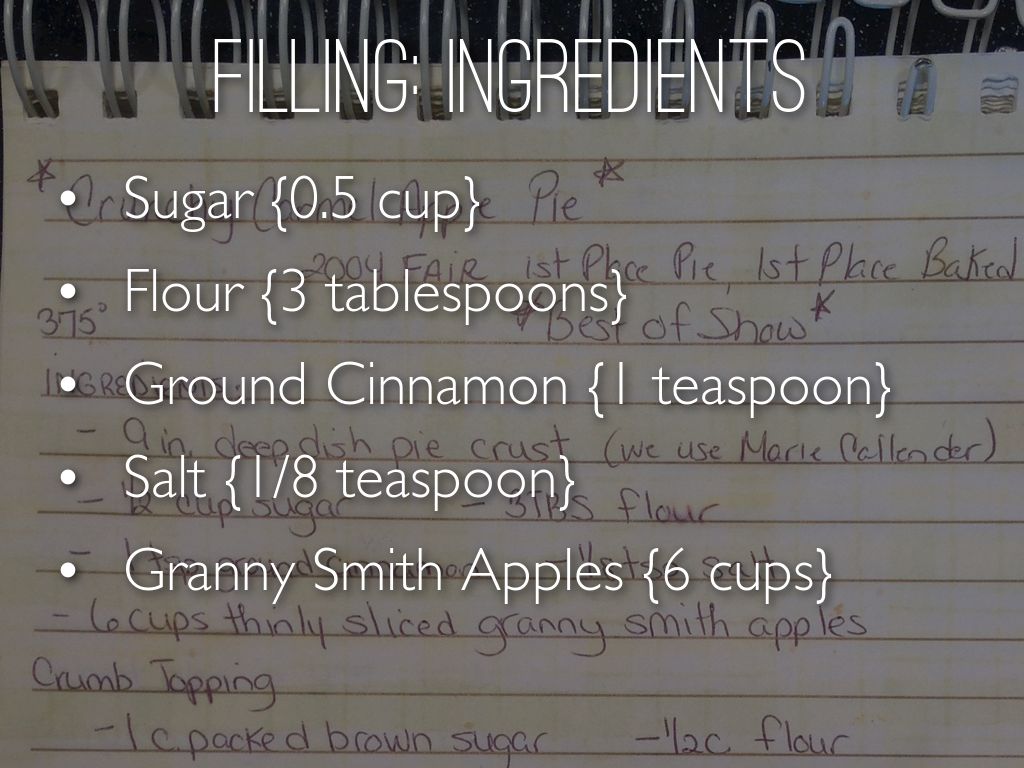 FILLING: INGREDIENTS
• Sugar {0.5 cup}
• Flour {3 tablespoons}
• Ground Cinnamon {1 teaspoon}
• Salt {1/8 teaspoon}
• Granny Smith Apples {6 cups}
* Apple Pie *
2004 FAIR 1st Place Pie, 1st Place Baked
375° * Best of Show *
INGREDIENTS:
- 9 in deep dish pie crust (we use Marie Callender)
- 1/2 cup sugar - 3TBS flour
- 6 cups thinly sliced granny smith apples
Crumb Topping
- 1 c. packed brown sugar - 1/2c flour